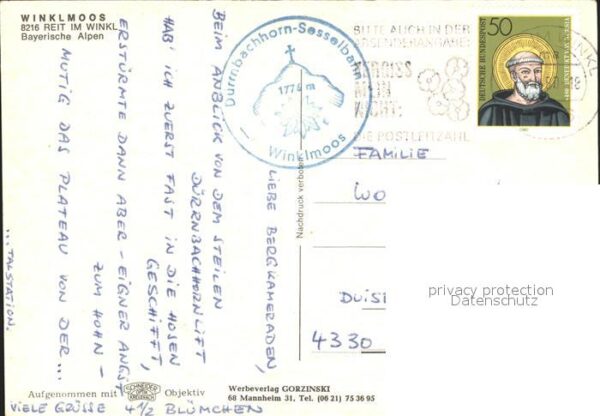 WINKLMOOS
8216 REIT IM WINKL
Bayerische Alpen
LIEBE BERGKAMERADEN,
BEIM ANBLICK VON DEM STEILEN
DÜRRNBACHHORNLIFT
HAB' ICH ZUERST FAST IN DIE HOSEN
GESCHIFFT,
ERSTÜRMTE DANN ABER - EIGNER ANGST
ZUM HOHN -
MUTIG DAS PLATEAU VON DER...
...TALSTATION.
VIELE GRÜSSE 4 1/2 BLÜMCHEN
Dürrnbachhorn-Sesselbahn
1776 m
Winklmoos
BITTE AUCH IN DER
ABSENDERANGABE:
VERGISS
MEIN
NICHT:
DIE POSTLEITZAHL
50
DEUTSCHE BUNDESPOST
WINKL
FAMILIE
WO
DUIS
4330
privacy protection
Datenschutz
Nachdruck verboten
Aufgenommen mit
SCHNEIDER
KREUZNACH
Objektiv
Werbeverlag GORZINSKI
68 Mannheim 31, Tel. (06 21) 75 36 95